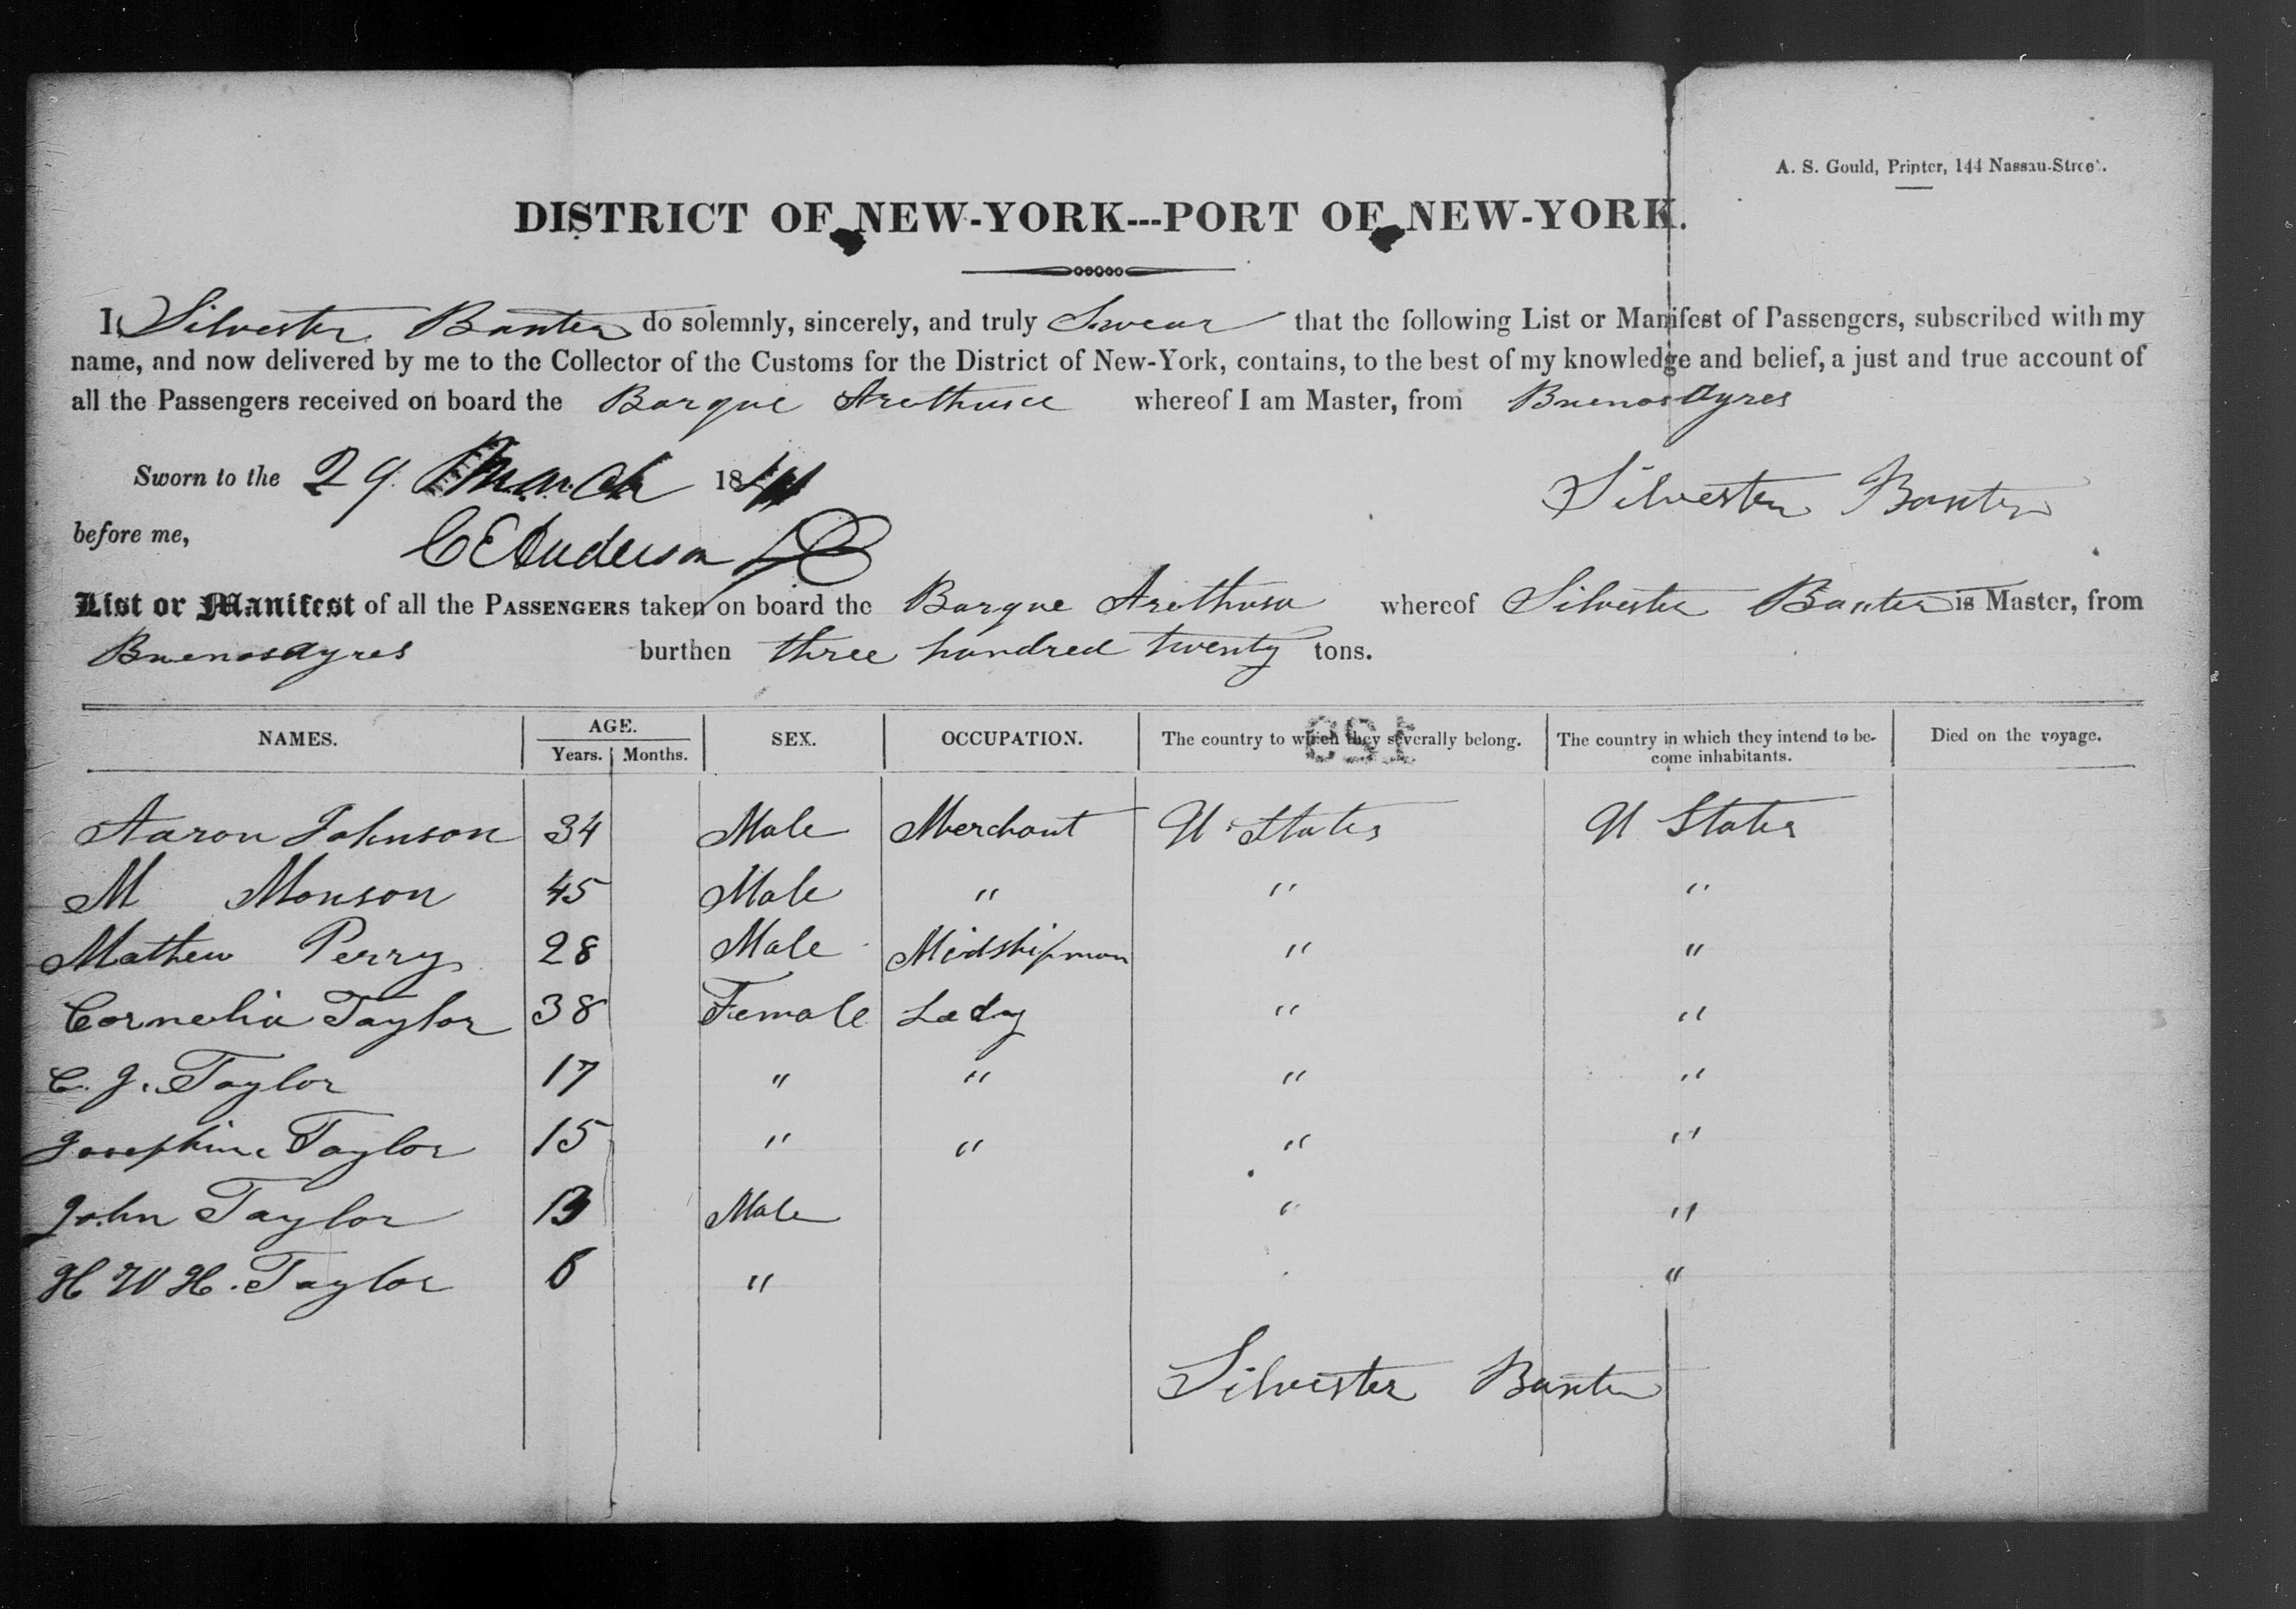 A. S. Gould, Printer, 144 Nassau-Street.
DISTRICT OF NEW-YORK---PORT OF NEW-YORK.
I, Silvester Baxter do solemnly, sincerely, and truly Swear that the following List or Manifest of Passengers, subscribed with my
name, and now delivered by me to the Collector of the Customs for the District of New-York, contains, to the best of my knowledge and belief, a just and true account of
all the Passengers received on board the Barque Arethusa whereof I am Master, from Buenos Ayres
Sworn to the 29 March 18
Silvester Baxter
before me,
C E Anderson
List or Manifest of all the PASSENGERS taken on board the Barque Arethusa whereof Silvester Baxter is Master, from
Buenos Ayres burthen three hundred twenty tons.
NAMES. AGE. SEX. OCCUPATION. The country to which they severally belong. The country in which they intend to be- Died on the voyage.
Years. Months. come inhabitants.
Aaron Johnson 34 Male Merchant U. States U States
M Monson 45 Male " " "
Mathew Perry 28 Male Midshipman " "
Cornelia Taylor 38 Female Lady " "
C. J. Taylor 17 " " " "
Josephine Taylor 15 " " " "
John Taylor 13 Male " "
H W H. Taylor " "
Silvester Baxter